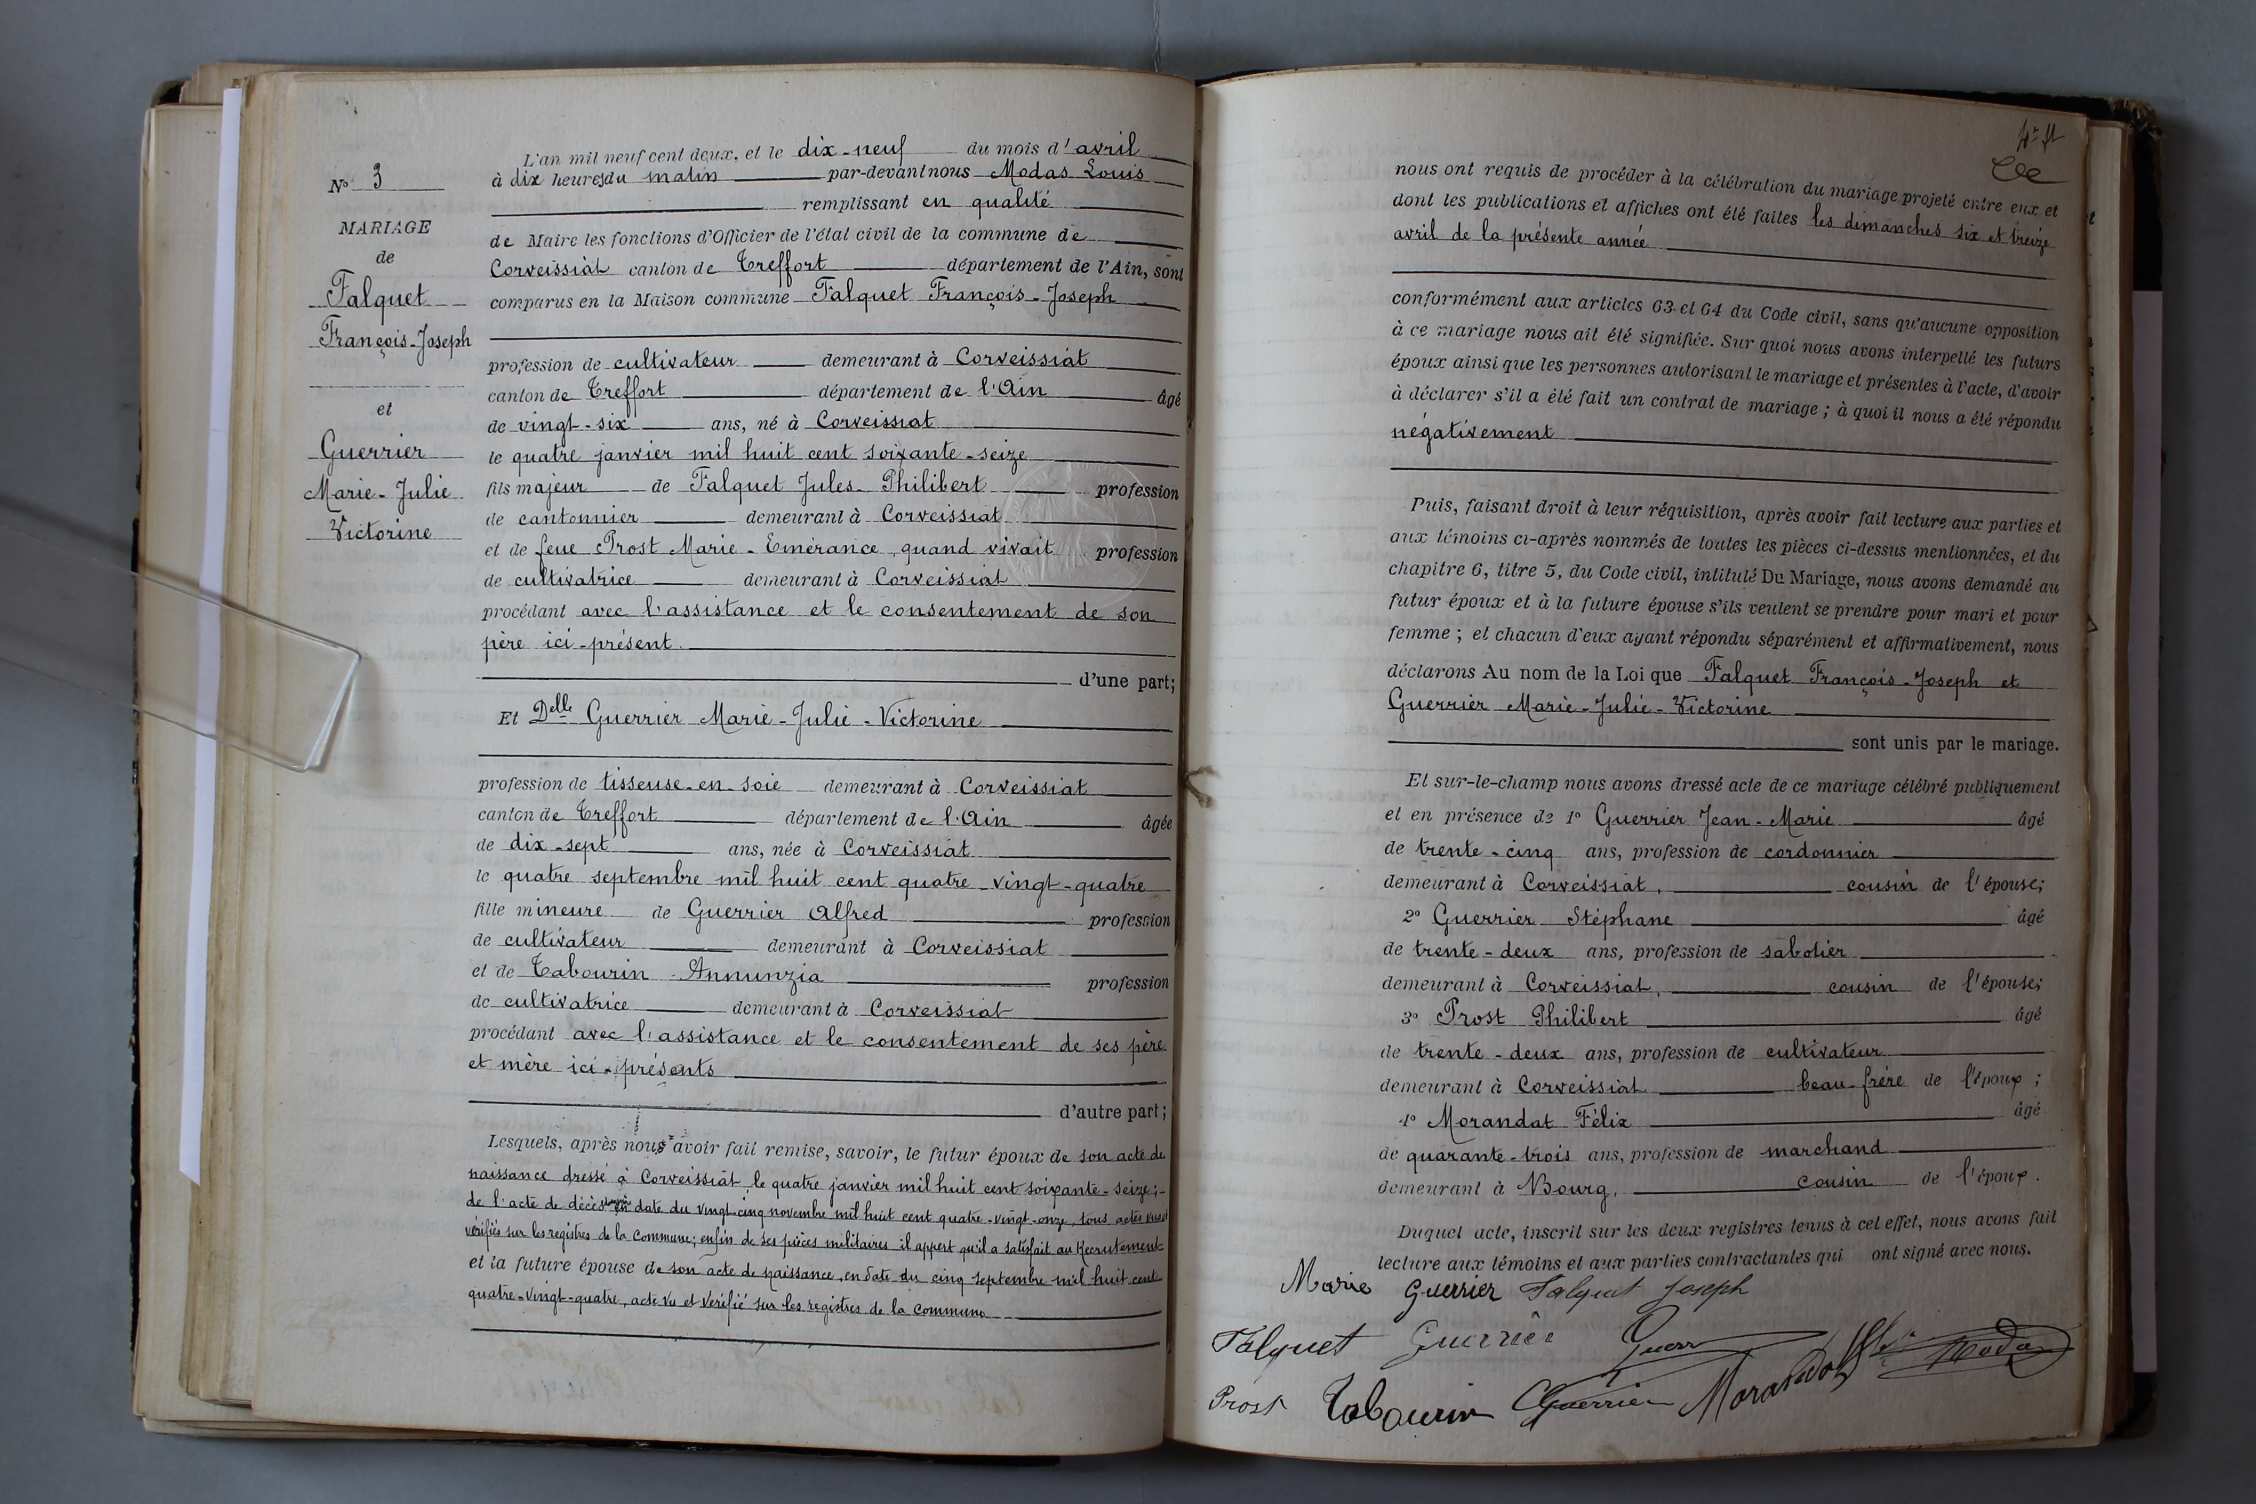 N° 3
MARIAGE
de
Falquet
François-Joseph
et
Guerrier
Marie-Julie
Victorine
L'an mil neuf cent deux, et le dix-neuf du mois d'avril
à dix heures du matin par-devant nous Modas Louis
remplissant en qualité
de Maire les fonctions d'Officier de l'état civil de la commune de
Corveissiat canton de Treffort département de l'Ain, sont
comparus en la Maison commune Falquet François-Joseph
profession de cultivateur demeurant à Corveissiat
canton de Treffort département de l'Ain âgé
de vingt-six ans, né à Corveissiat
le quatre janvier mil huit cent soixante-seize
fils majeur de Falquet Jules-Philibert profession
de cantonnier demeurant à Corveissiat
et de feue Prost Marie-Emérance, quand vivait profession
de cultivatrice demeurant à Corveissiat
procédant avec l'assistance et le consentement de son
père ici-présent.
d'une part;
Et Delle Guerrier Marie-Julie-Victorine
profession de tisseuse-en-soie demeurant à Corveissiat
canton de Treffort département de l'Ain âgée
de dix-sept ans, née à Corveissiat
le quatre septembre mil huit cent quatre-vingt-quatre
fille mineure de Guerrier Alfred profession
de cultivateur demeurant à Corveissiat
et de Tabourin Annunzia profession
de cultivatrice demeurant à Corveissiat
procédant avec l'assistance et le consentement de ses père
et mère ici-présents
d'autre part;
Lesquels, après nous avoir fait remise, savoir, le futur époux de son acte de
naissance dressé à Corveissiat le quatre janvier mil huit cent soixante-seize;
de l'acte de décès en date du vingt-cinq novembre mil huit cent quatre-vingt-onze, tous actes vus et
vérifiés sur les registres de la commune; enfin de ses pièces militaires il appert qu'il a satisfait au Recrutement
et la future épouse de son acte de naissance, en date du cinq septembre mil huit cent
quatre-vingt-quatre, acte vu et vérifié sur les registres de la commune
nous ont requis de procéder à la célébration du mariage projeté entre eux et
dont les publications et affiches ont été faites les dimanches six et treize
avril de la présente année
conformément aux articles 63 et 64 du Code civil, sans qu'aucune opposition
à ce mariage nous ait été signifiée. Sur quoi nous avons interpellé les futurs
époux ainsi que les personnes autorisant le mariage et présentes à l'acte, d'avoir
à déclarer s'il a été fait un contrat de mariage; à quoi il nous a été répondu
négativement
Puis, faisant droit à leur réquisition, après avoir fait lecture aux parties et
aux témoins ci-après nommés de toutes les pièces ci-dessus mentionnées, et du
chapitre 6, titre 5, du Code civil, intitulé Du Mariage, nous avons demandé au
futur époux et à la future épouse s'ils veulent se prendre pour mari et pour
femme; et chacun d'eux ayant répondu séparément et affirmativement, nous
déclarons Au nom de la Loi que Falquet François-Joseph et
Guerrier Marie-Julie-Victorine
sont unis par le mariage.
Et sur-le-champ nous avons dressé acte de ce mariage célébré publiquement
et en présence de 1° Guerrier Jean-Marie âgé
de trente-cinq ans, profession de cordonnier
demeurant à Corveissiat, cousin de l'épouse;
2° Guerrier Stéphane âgé
de trente-deux ans, profession de sabotier
demeurant à Corveissiat, cousin de l'épouse;
3° Prost Philibert âgé
de trente-deux ans, profession de cultivateur
demeurant à Corveissiat beau-frère de l'époux;
4° Morandat Félix âgé
de quarante-trois ans, profession de marchand
demeurant à Bourg, cousin de l'époux.
Duquel acte, inscrit sur les deux registres tenus à cet effet, nous avons fait
lecture aux témoins et aux parties contractantes qui ont signé avec nous.
Marie Guerrier Falquet Joseph
Falquet Guerrier Guerr Modas
Prost Tabourin Guerrier Morandat